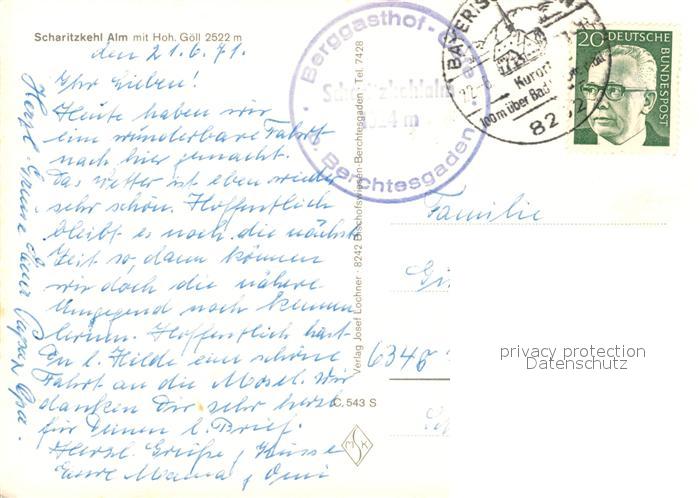 Scharitzkehl Alm mit Hoh. Göll 2522 m
den 21.6.71.
Ihr Lieben!
Heute haben wir
eine wunderbare Fahrt
nach hier gemacht.
Das Wetter ist eben wieder
sehr schön. Hoffentlich
bleibt es noch die nächste
Zeit so, dann können
wir doch die nähere
Umgegend noch kennen
lernen. Hoffentlich hast
Du l. Hilde eine schöne
Fahrt an die Mosel. Wir
danken Dir sehr herzl.
für Deinen l. Brief.
Herzl. Grüße, Küsse
Eure Mama, Omi
Herzl. Grüße Euer Papa, Opa.
Berggasthof
Scharitzkehlalm
1024 m
b. Berchtesgaden
Verlag Josef Lochner · 8242 Bischofswiesen-Berchtesgaden · Tel. 7428
C. 543 S
Kurort
100m über Bad
20
DEUTSCHE
BUNDESPOST
Familie
6348
privacy protection
Datenschutz